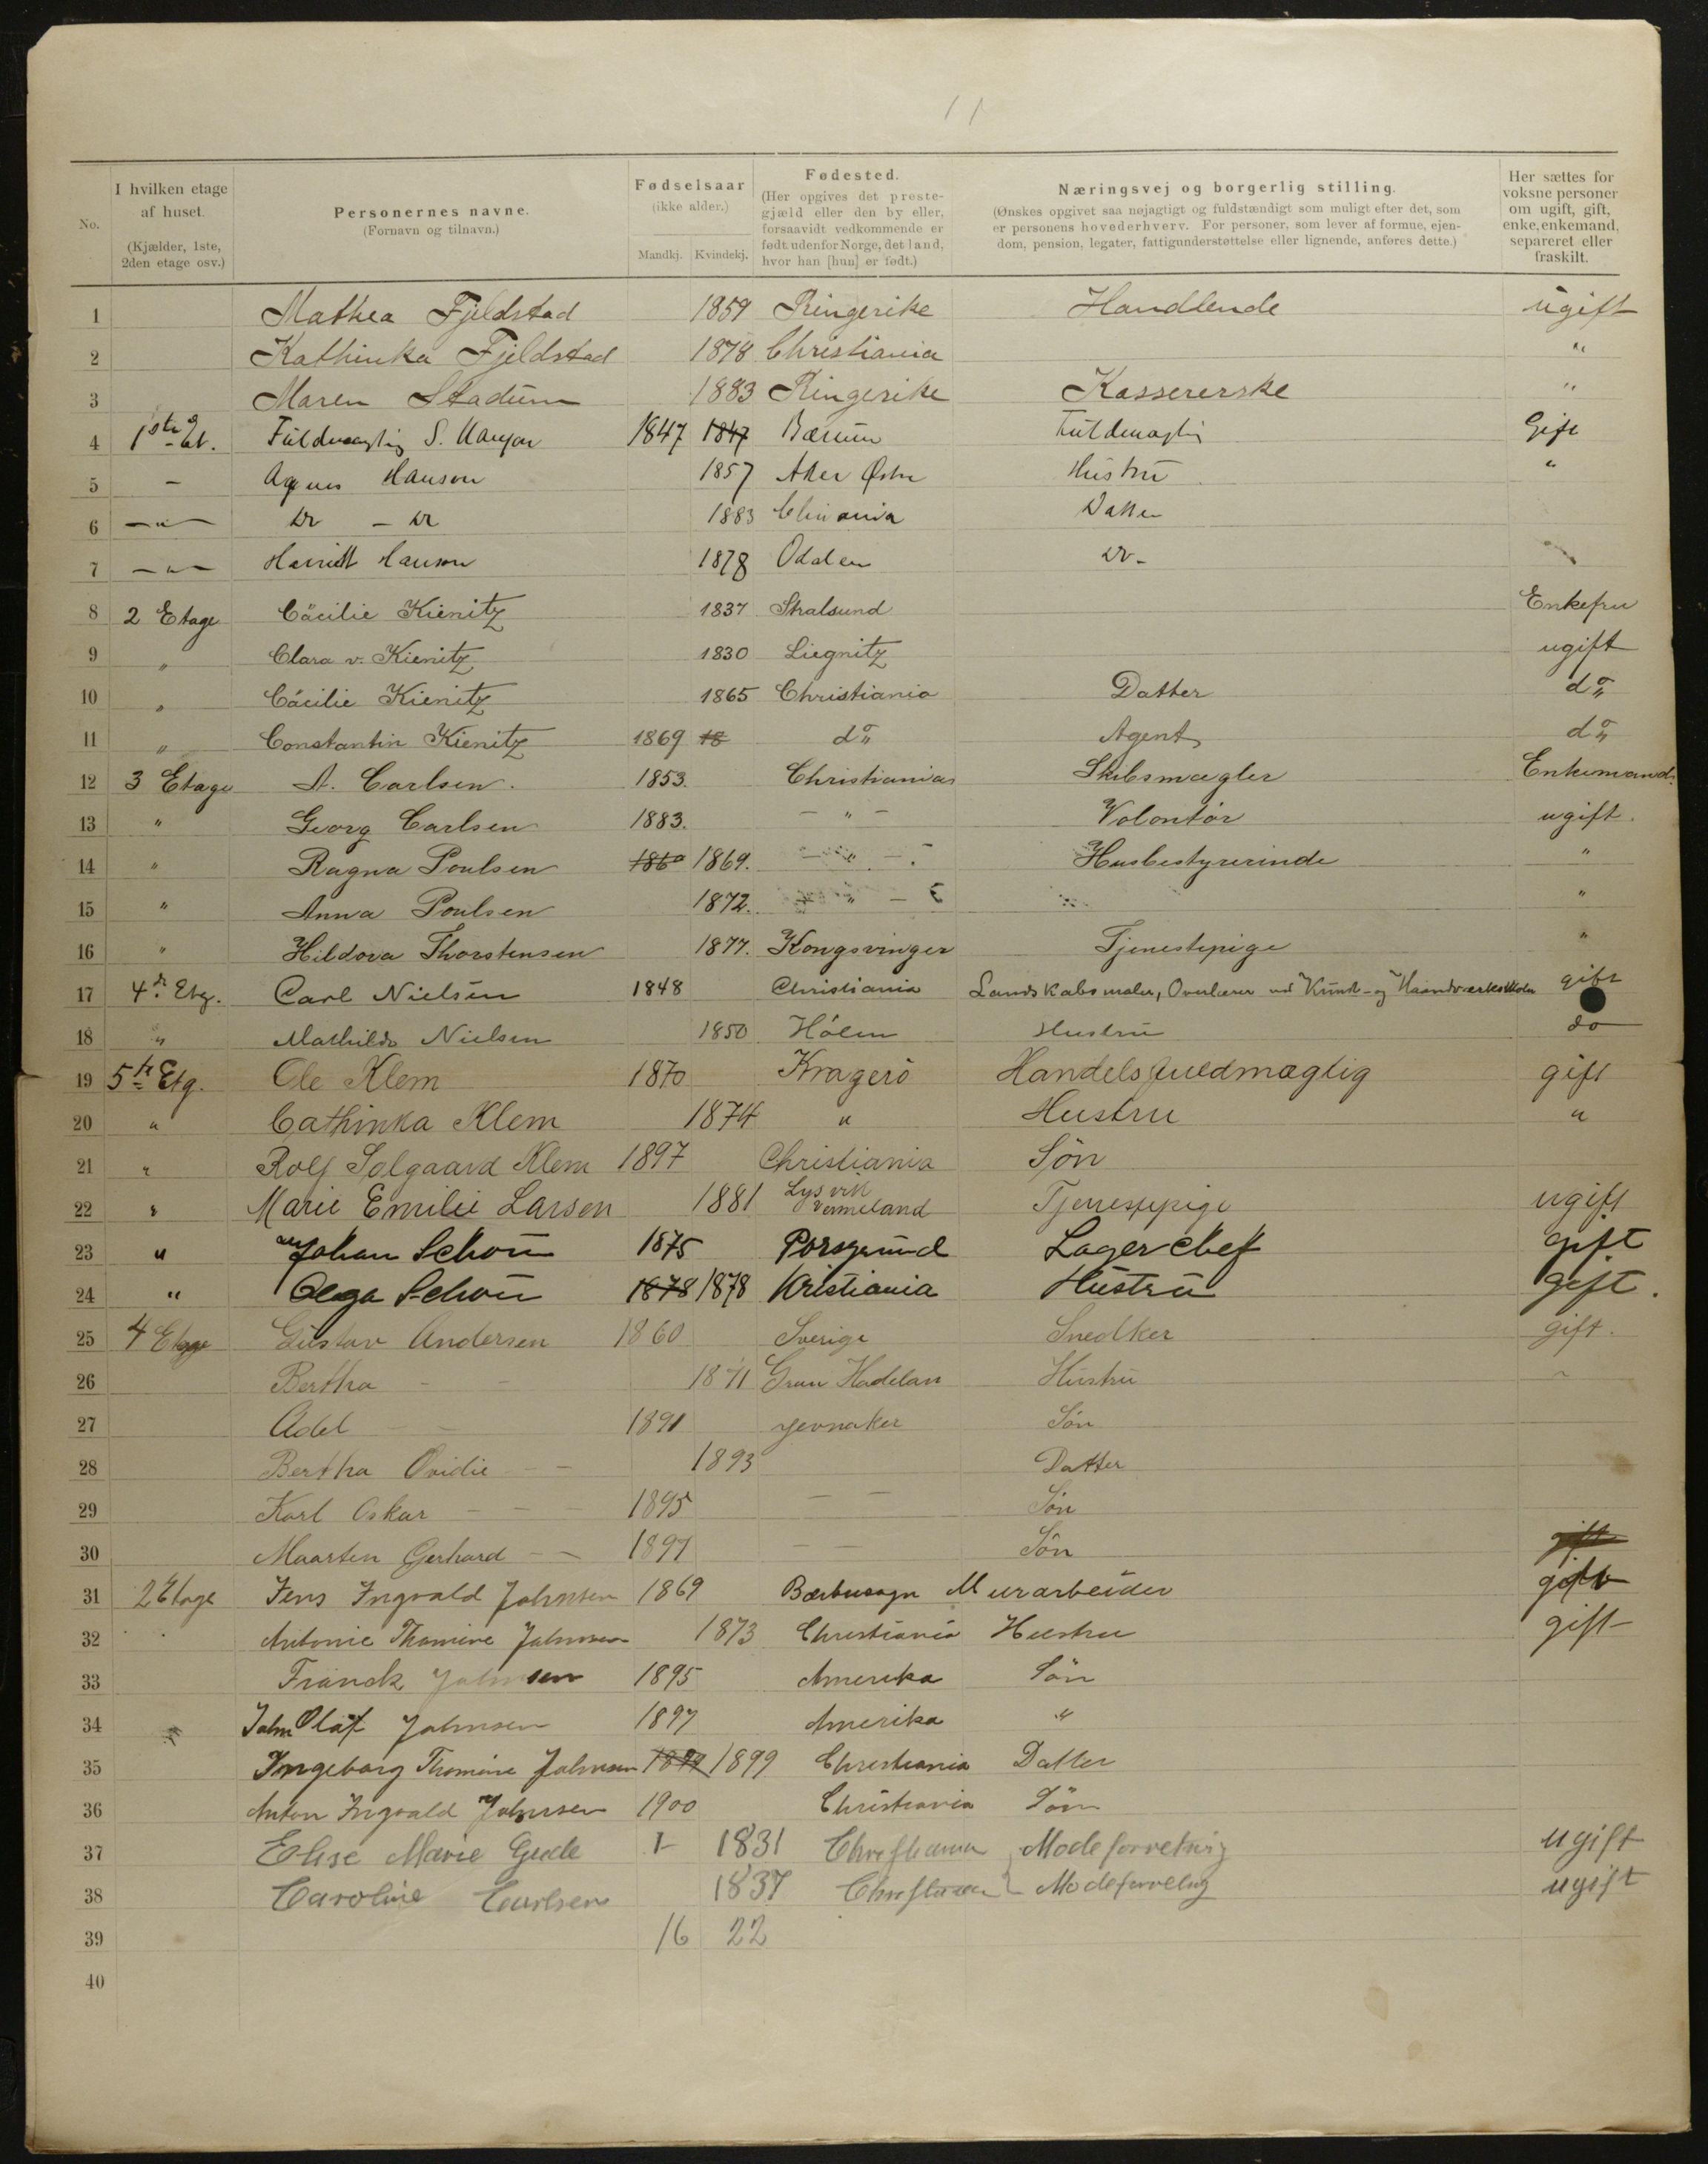 11
No.
I hvilken etage af huset. (Kjælder, 1ste, 2den etage osv.)
Personernes navne. (Fornavn og tilnavn.)
Fødselsaar (ikke alder.) Mandkj. Kvindekj.
Fødested. (Her opgives det prestegjæld eller den by eller, forsaavidt vedkommende er født udenfor Norge, det land, hvor han [hun] er født.)
Næringsvej og borgerlig stilling. (Ønskes opgivet saa nøjagtigt og fuldstændigt som muligt efter det, som er personens hovederhverv. For personer, som lever af formue, ejendom, pension, legater, fattigunderstøttelse eller lignende, anføres dette.)
Her sættes for voksne personer om ugift, gift, enke, enkemand, separeret eller fraskilt.
1 Mathea Fjeldstad 1859 Ringerike Handlende ugift
2 Kathinka Fjeldstad 1878 Christiania "
3 Maren Stadum 1883 Ringerike Kassererske "
4 1ste Et. Fuldmægtig S. 1847 1847 Bærum Fuldmægtig Gift
5 - Agnes Hansen 1857 Aker Hustru "
6 -"- Do - Do 1883 Datter
7 -"- Harriett Hansen 1878 Odalen Do -
8 2 Etage Cäcilie Kienitz 1837 Stralsund Enkefru
9 " Clara v. Kienitz 1830 Liegnitz ugift
10 " Cäcilie Kienitz 1865 Christiania Datter do "
11 " Constantin Kienitz 1869 18 do " Agent do "
12 3 Etage A. Carlsen. 1853. Christiania Skibsmægler Enkemand.
13 " Georg Carlsen 1883. - " - Volontør ugift.
14 " Ragna Poulsen 1860 1869. - " - Husbestyrerinde "
15 " Anna Poulsen 1872. " - "
16 " Hildora Thorstensen 1877. Kongsvinger Tjenestepige "
17 4de Etg. Carl Nielsen 1848 Christiania Landskabsmaler, Overlærer ved Kunst- og Haandværksskolen gift
18 " Mathilde Nielsen 1850 Hølen Hustru do
19 5te Etg. Ole Klem 1870 Kragerö Handelsfuldmægtig gift
20 " Cathinka Klem 1874 " Hustru "
21 " Rolf Solgaard Klem 1897 Christiania Søn
22 " Marie Emilie Larsen 1881 Lysvik Vermeland Tjenestepige ugift
23 " Johan Schou 1875 Porsgrund Lagerchef gift
24 " Olga Schou 1878 1878 Kristiania Hustru gift.
25 4 Etage Gustav Andersen 1860 Sverige Snedker gift.
26 Bertha - - 1871 Gran Hadelan Hustru -
27 Adel - - 1891 Jevnaker Søn
28 Bertha Ovidie - - 1893 Datter
29 Karl Oskar - - - 1895 - - Søn
30 Maarten Gerhard - - 1897 - - Søn gift
31 2 Etage Jens Ingvald Johnsen 1869 Murarbeider gift
32 Antonie Thomine Johnsen 1873 Christiania Hustru gift
33 Franck Johnsen 1895 Amerika Søn
34 John Olaf Johnsen 1897 Amerika "
35 Ingeborg Thomine Johnsen 1899 1899 Christiania Datter
36 Anton Ingvald Johnsen 1900 Christiania Søn
37 Elise Marie Gude 1831 Christiania Modeforretning ugift
38 Caroline Carlsen 1837 Christiania Modeforretning ugift
39 16 22
40